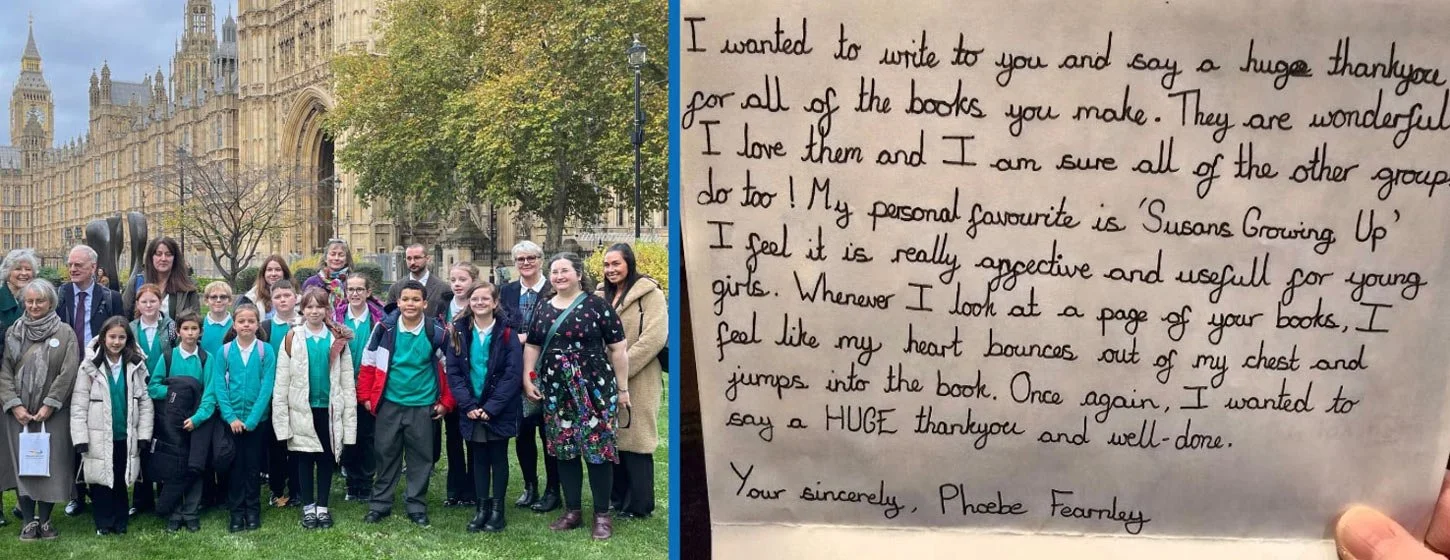 I wanted to write to you and say a huge thankyou
for all of the books you make. They are wonderful
I love them and I am sure all of the other group
do too! My personal favourite is 'Susans Growing Up'
I feel it is really affective and usefull for young
girls. Whenever I look at a page of your books, I
feel like my heart bounces out of my chest and
jumps into the book. Once again, I wanted to
say a HUGE thankyou and well-done.
Your sincerely, Phoebe Fearnley